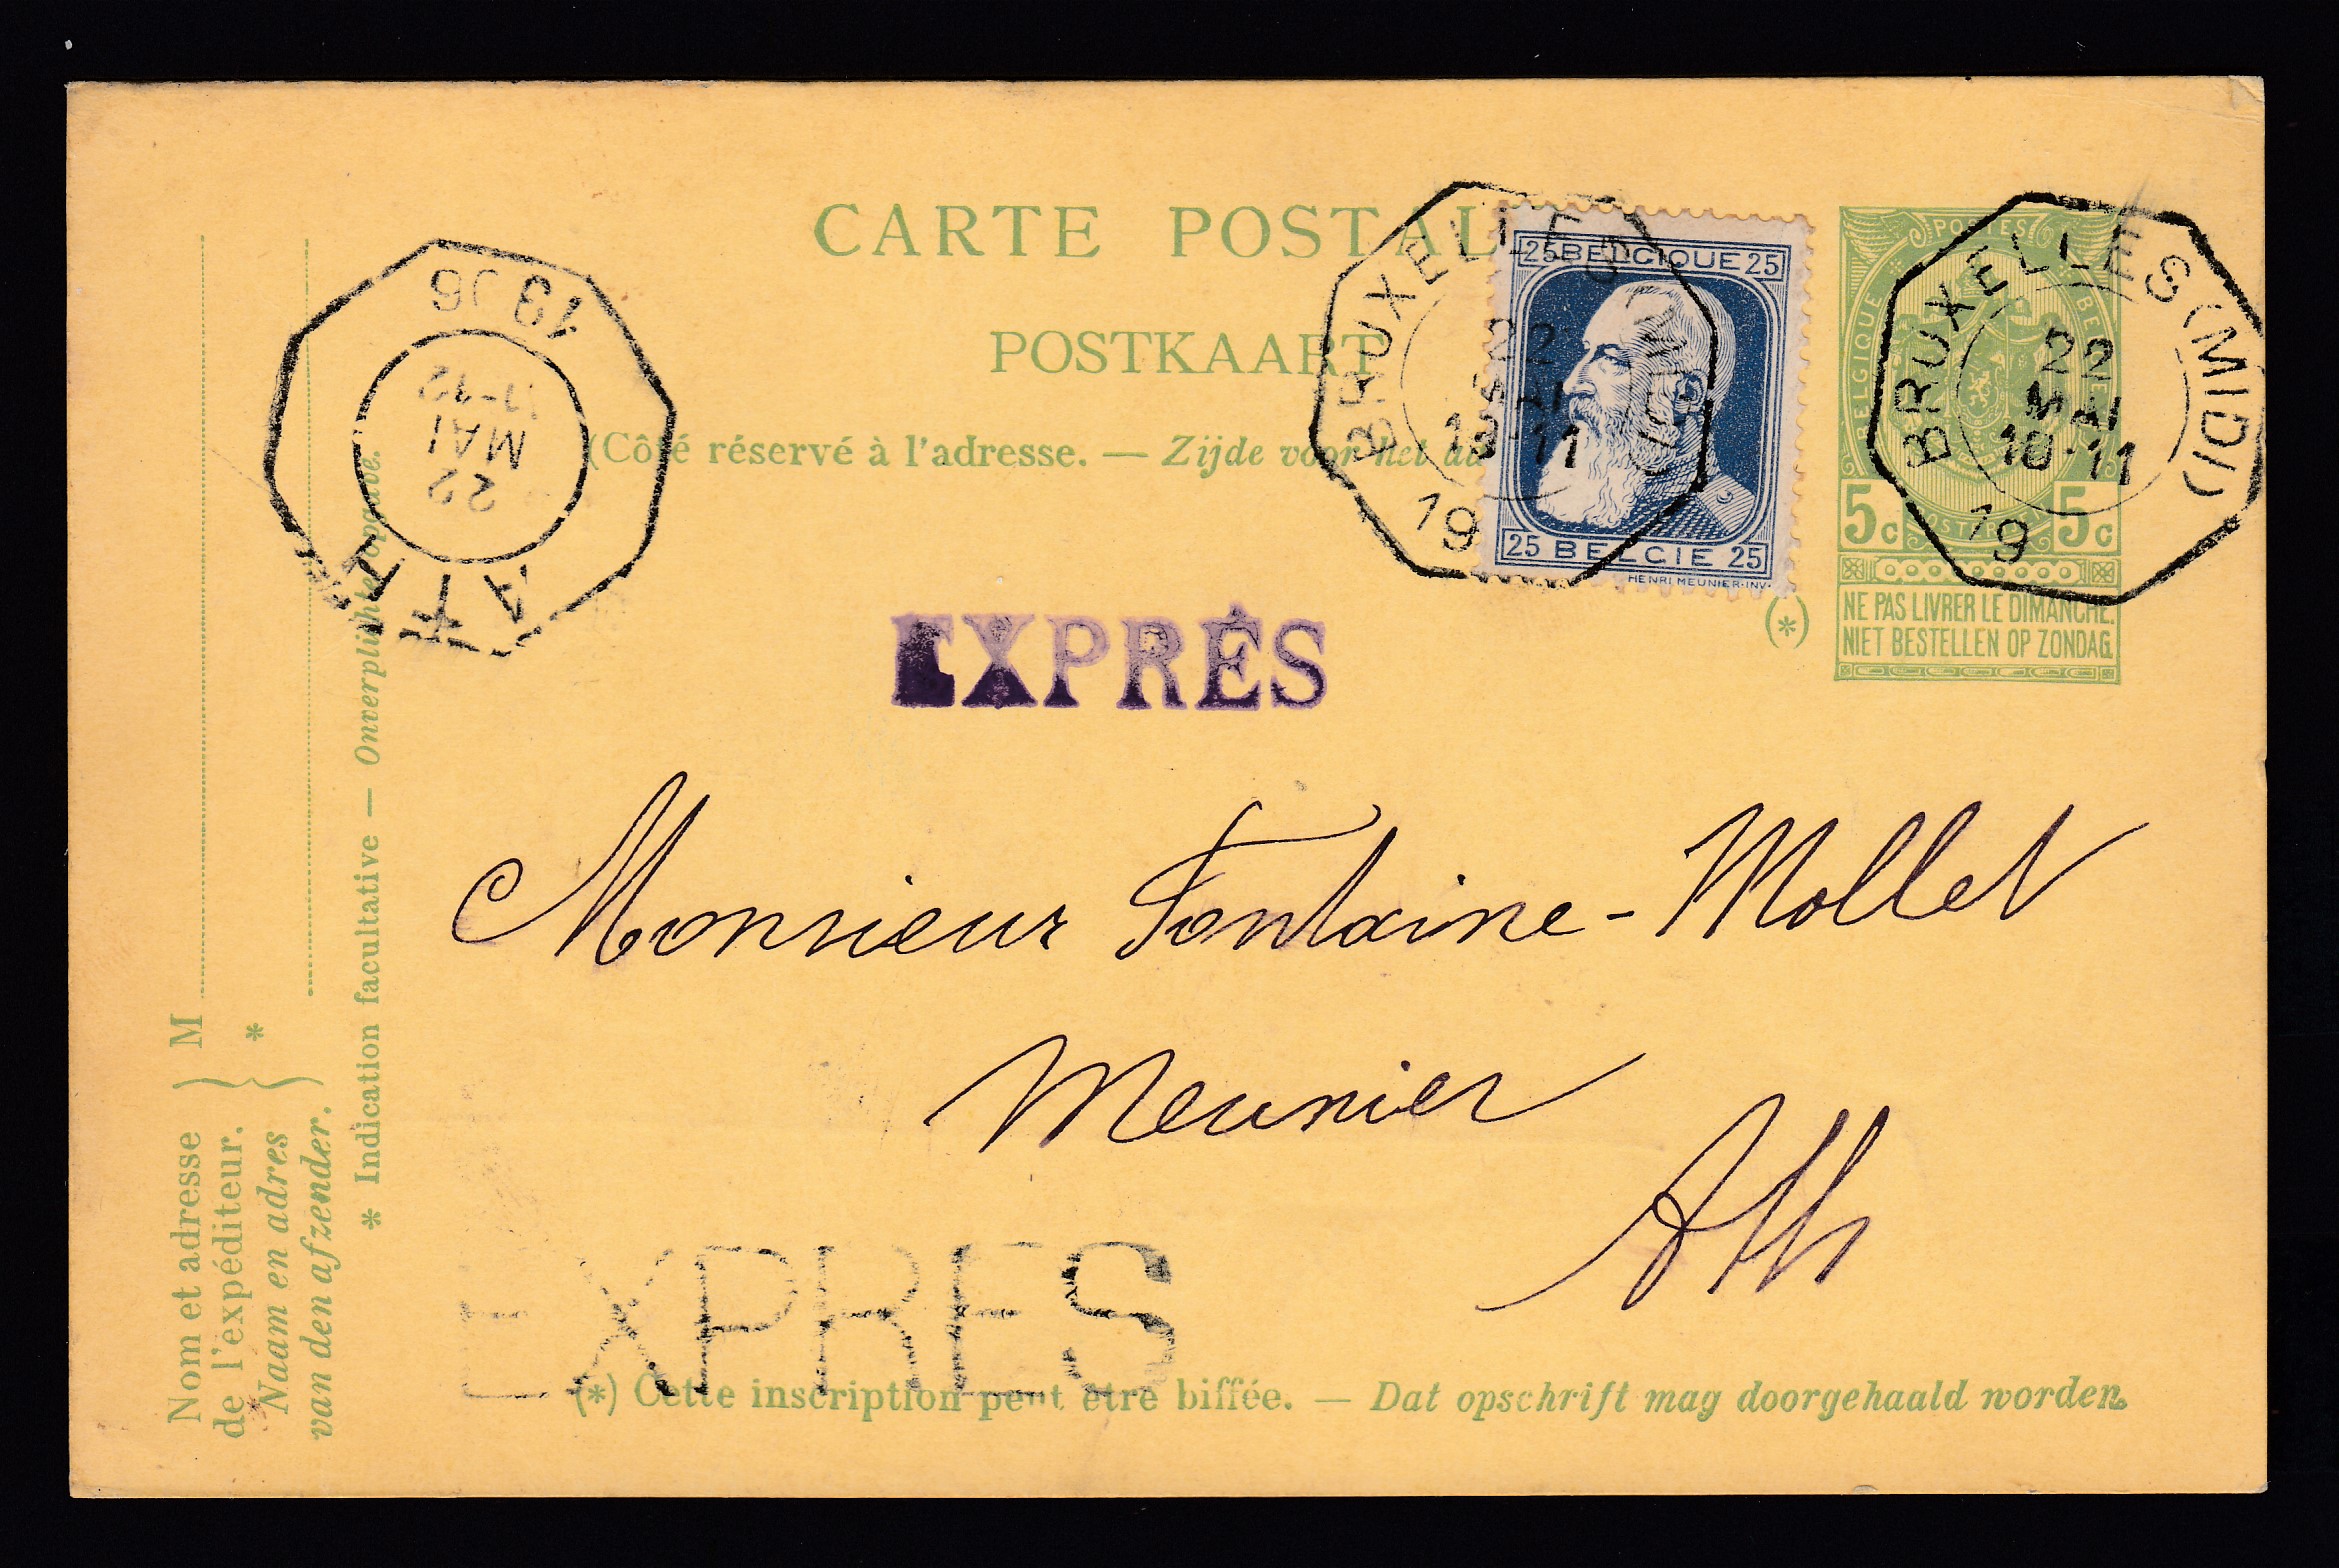 CARTE POSTAL
POSTKAART
(Côté réservé à l'adresse. — Zijde voor het
25 BELGIQUE 25
25 BELGIE 25
HENRI MEUNIER·INV.
BRUXELLES (MIDI)
22
MAI
10-11
19
POSTES
BELGIQUE
5c 5c
NE PAS LIVRER LE DIMANCHE.
NIET BESTELLEN OP ZONDAG.
(*)
BRUXELLES (MIDI)
22
MAI
10-11
19
ATH
22
MAI
11-12
1906
EXPRÈS
Monsieur Fontaine-Mollet
Meunier
Ath
EXPRES
(*) Cette inscription peut être biffée. — Dat opschrift mag doorgehaald worden.
Nom et adresse
de l'expéditeur.
Naam en adres
van den afzender.
M
*
* Indication facultative — Onverplichte opgave.